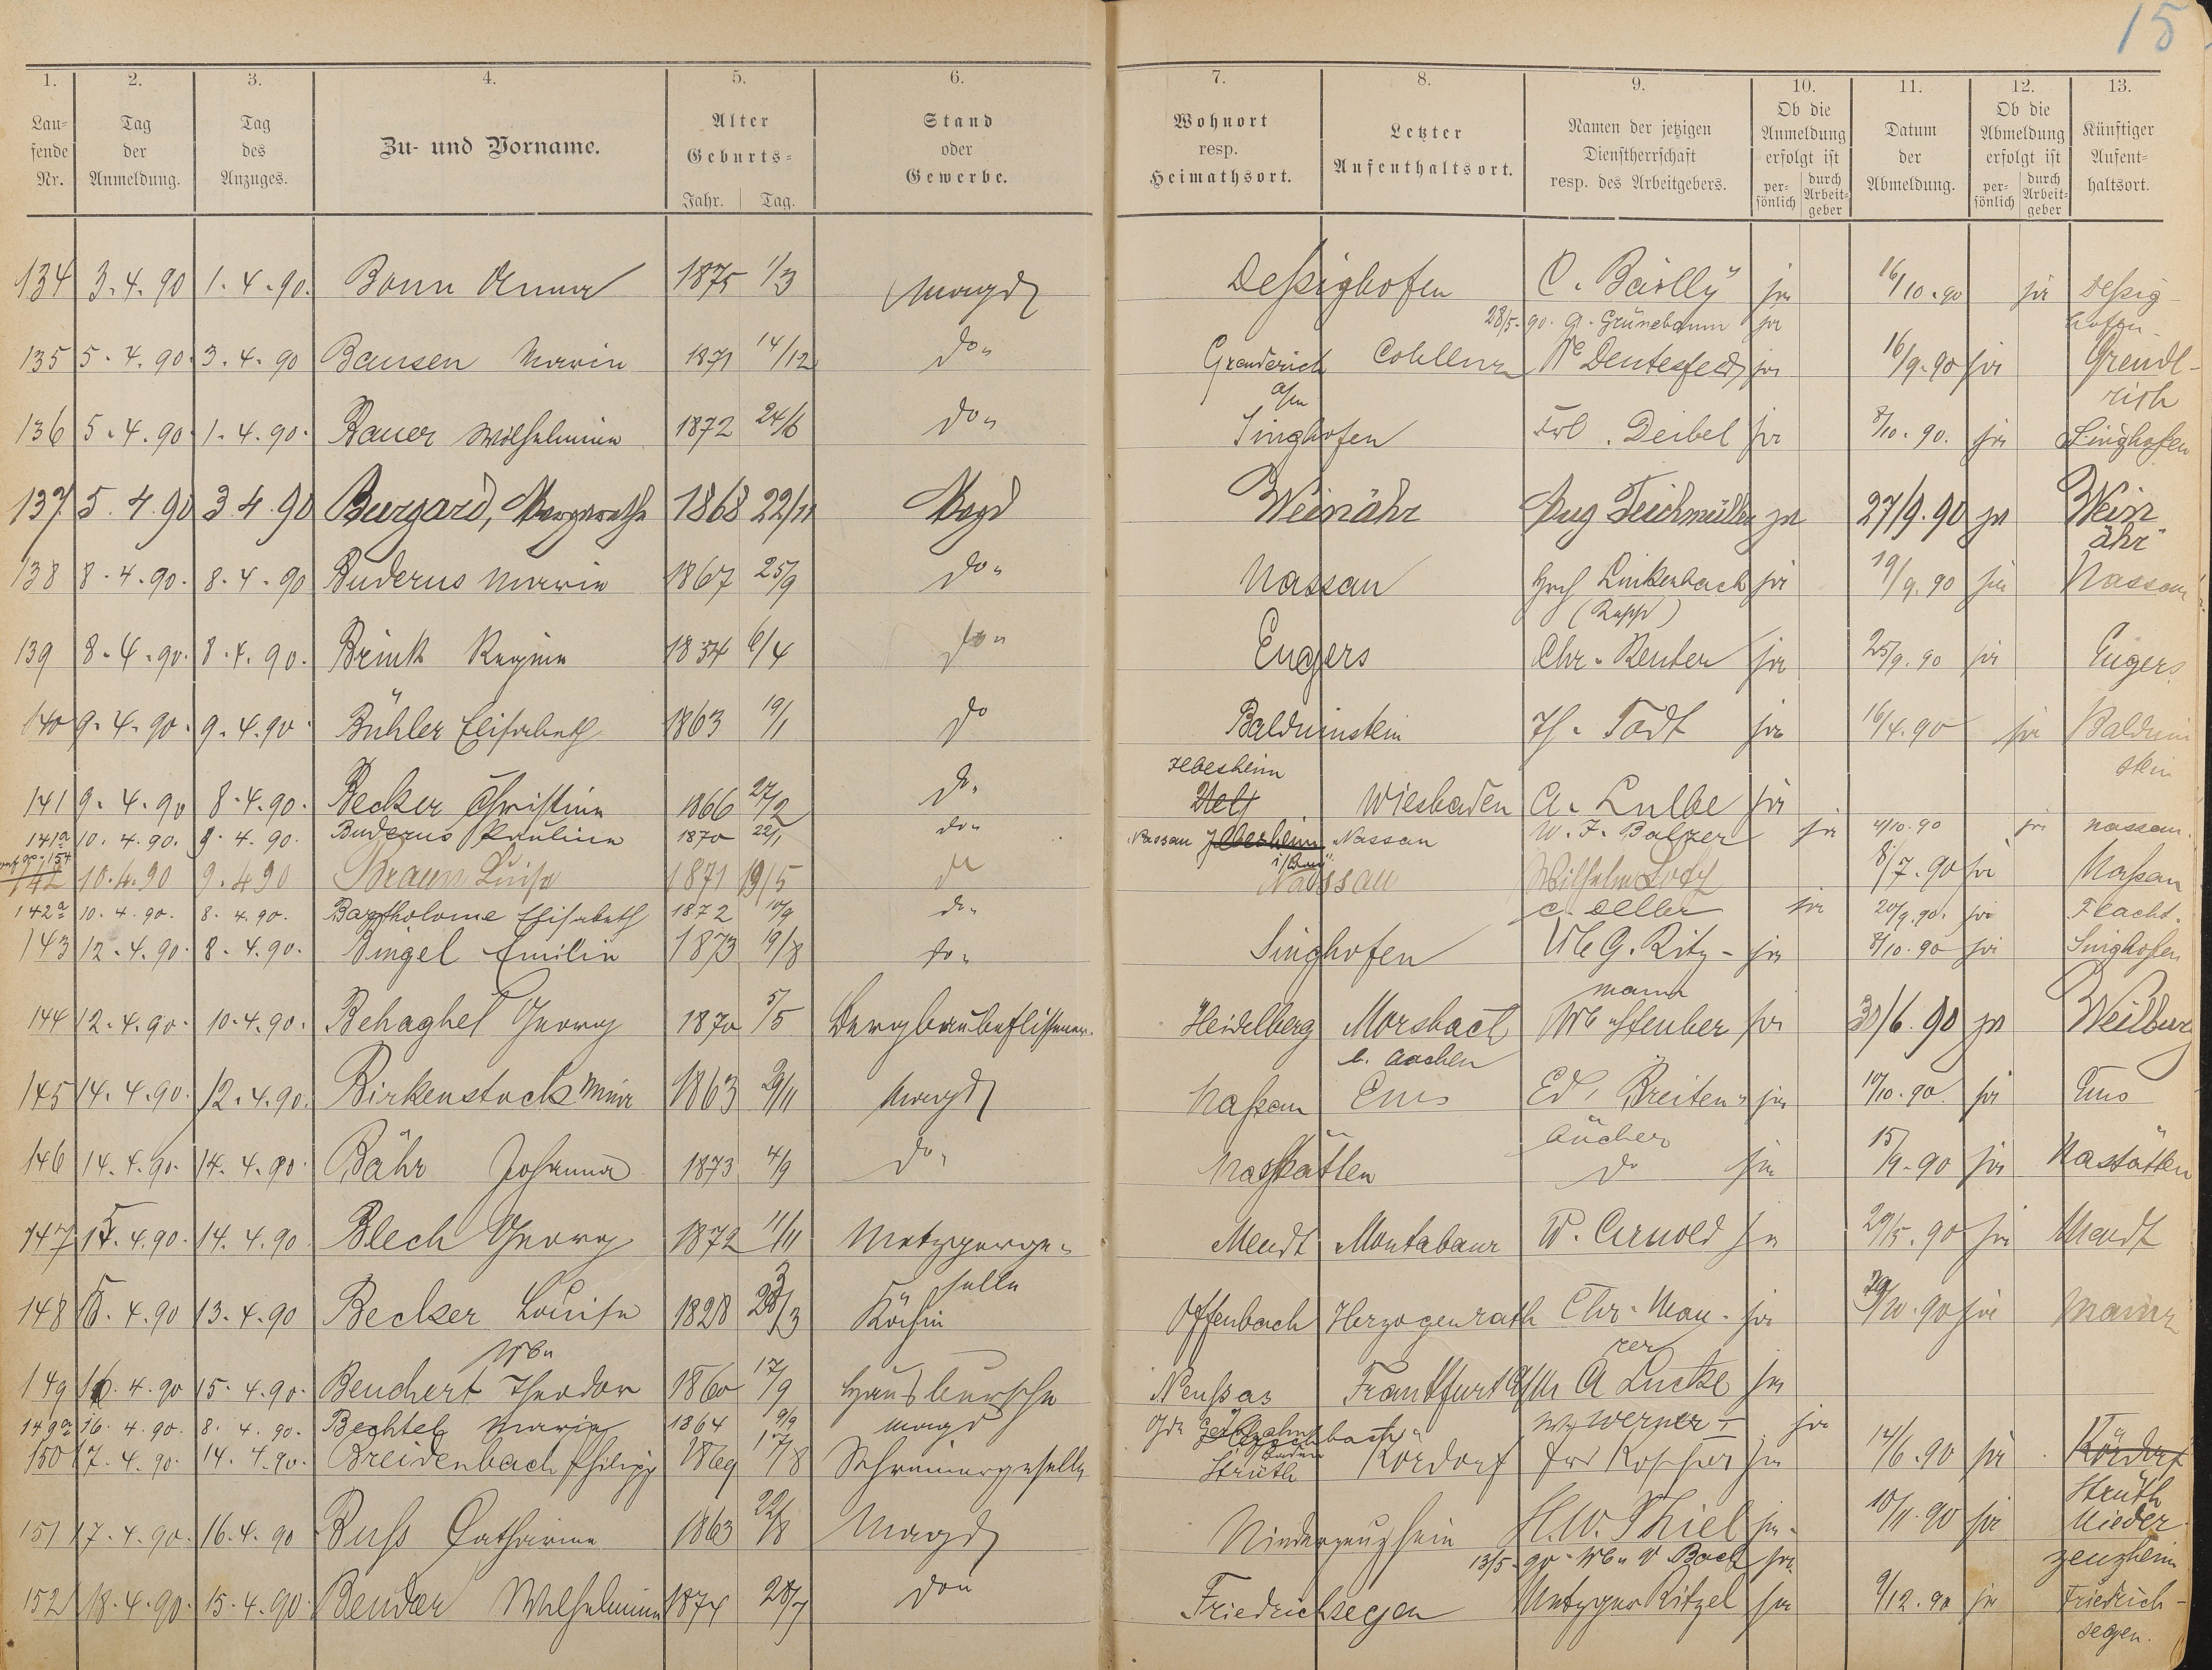 15
1. 2. 3. 4. 5. 6. 7. 8. 9. 10. 11. 12. 13.
Lau-
fende
Nr.
Tag
der
Anmeldung.
Tag
des
Anzuges.
Zu- und Vorname.
Alter
Geburts-
Jahr. Tag.
Stand
oder
Gewerbe.
Wohnort
resp.
Heimathsort.
Letzter
Aufenthaltsort.
Namen der jetzigen
Dienstherrschaft
resp. des Arbeitgebers.
Ob die
Anmeldung
erfolgt ist
per-
sönlich
durch
Arbeit-
geber
Datum
der
Abmeldung.
Ob die
Abmeldung
erfolgt ist
per-
sönlich
durch
Arbeit-
geber
Künftiger
Aufent-
haltsort.
134 3.4.90 1.4.90. Bonn Anna 1875 1/3 Magd Deßighofen C. Bailly ja 16/10.90 ja Deßig-
28/5.90. A. Grünebaum ja hofen.
135 5.4.90. 3.4.90 Bansen Maria 1871 14/12 do Grenderich Coblenz We Dentesfeld ja 16/9.90 ja Grend-
a/M rich
136 5.4.90. 1.4.90. Bauer Wilhelmine 1872 24/6 do Singhofen Frl. Deibel ja 8/10.90. ja Singhofen
137 5.4.90 3.4.90 Burgard, Margarethe 1868 22/11 Magd Weinähr Aug Teichmüller ja 27/9.90 ja Wein
ähr
138 8.4.90. 8.4.90 Buderus Maria 1867 25/9 do Nassau Hrch Linkenbach ja 19/9.90 ja Nassau
(Rapp)
139 8.4.90. 8.4.90. Brink Regina 1854 6/4 do Engers Chr. Reuter ja 25/9.90 ja Engers
140 9.4.90. 9.4.90. Bühler Elisabeth 1863 19/1 do Balduinstein Th. Todt ja 16/4.90 ja Balduin
stein
Ilbesheim
141 9.4.90 8.4.90. Becker Christine 1866 27/2 do Wiesbaden A. Lulbe ja
141a 10.4.90. 9.4.90. Buderus Pauline 1870 22/1 do Nassau Ilbesheim Nassau W. F. Balzer ja 4/10.90 ja Nassau.
142 10.4.90 9.4.90 Braun Luise 1871 19/5 do Nassau Wilhelm Lotz 8/7.90 ja Naßau
142a 10.4.90. 8.4.90. Bartholome Elisabeth 1872 10/9 do C. Oeller ja 20/9.90. ja Flacht.
143 12.4.90. 8.4.90. Bingel Emilie 1873 19/8 do Singhofen We G. Ritz- ja 8/10.90 ja Singhofen
mann
144 12.4.90. 10.4.90. Behaghel Georg 1870 5/5 Bergbaubeflissener. Heidelberg Morsbach We Steuber ja 30/6.90 ja Weilburg
b. Aachen
145 14.4.90. 12.4.90. Birkenstock Mina 1863 29/11 Magd Naßau Ems Ed. Breiten- ja 10/10.90. ja Ems
bücher
146 14.4.90. 14.4.90. Bähr Johanna 1873 4/9 do Nastätten do ja 15/9.90 ja Nastätten
147 15.4.90. 14.4.90 Blech Georg 1872 11/11 Metzgerge-
selle Mendt Montabaur W. Arnold ja 29/5.90 ja Mendt
148 15.4.90 13.4.90 Becker Louise 1828 23/3 Köchin Offenbach Herzogenrath Chr. Mau- ja 29/10.90 ja Mainz
Wwe rer
149 16.4.90 15.4.90. Beuchert Theodor 1860 17/9 Hausbursche Neuſsas Frankfurt a/M A Lucke ja
149a 16.4.90. 8.4.90. Bechtel Maria 1864 9/9 Magd Werner ja
150 17.4.90. 14.4.90. Breidenbach Philipp 1869 17/8 Schreinergeselle Strüth Kördorf ja 14/6.90 ja Kördorf
Strüth
151 17.4.90. 16.4.90 Buß Catharine 1863 22/8 Magd Niederzeuzheim H.W. Thiel ja 10/11.90 ja Nieder
13/5.90. Wwe V Bach ja. zeuzheim
152 18.4.90. 15.4.90 Bender Wilhelmine 1874 28/7 do Friedrichsegen Metzger Ritzel ja 9/12.90 ja Friedrich-
segen.